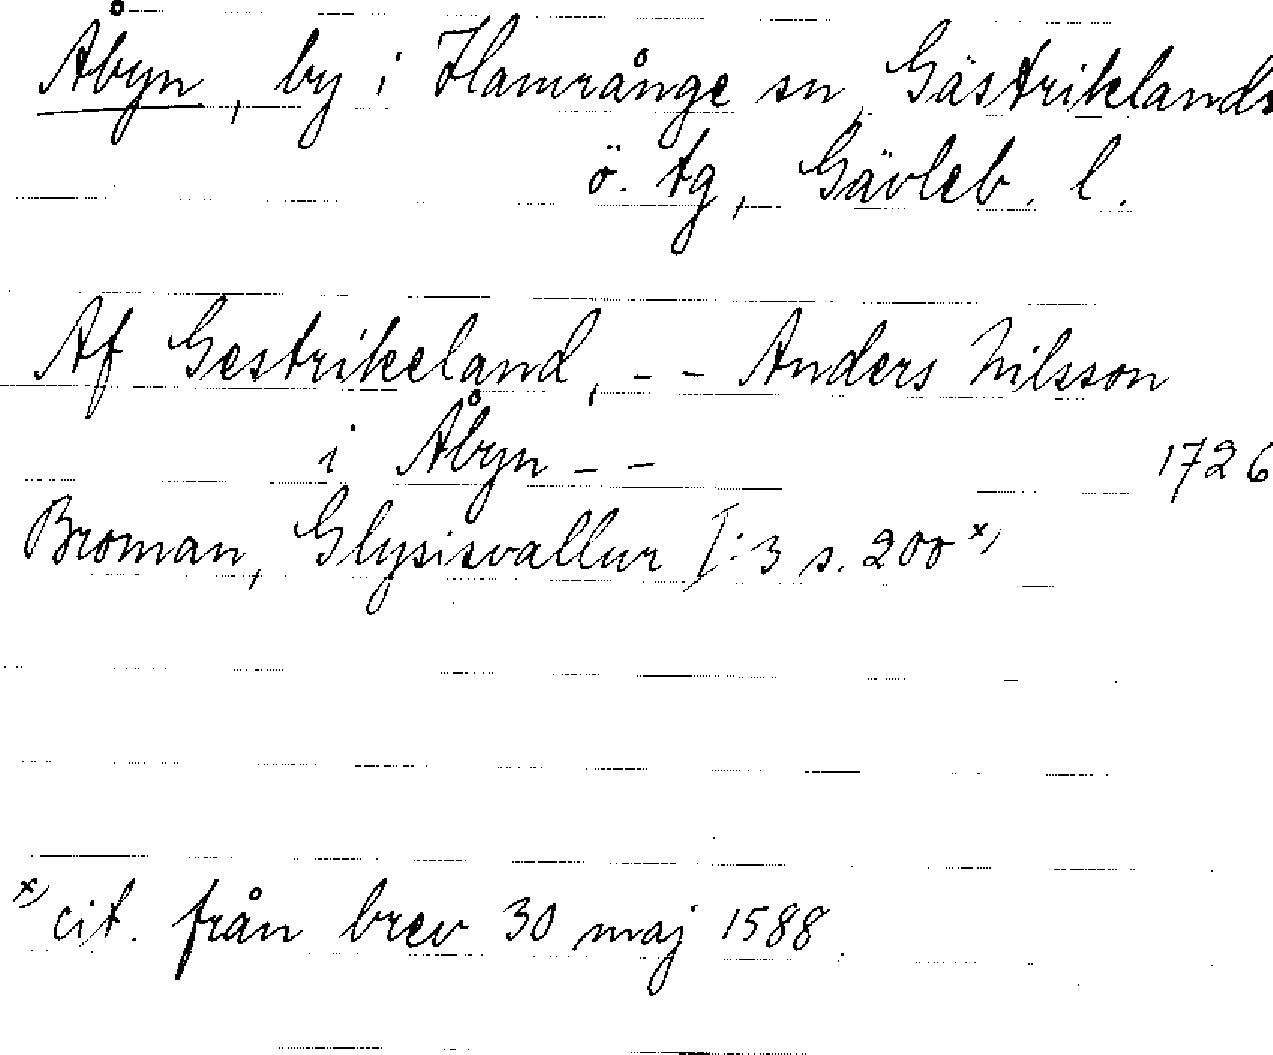 Åbyn, by i Hamrånge sn, Gästriklands
ö. tg, Gävleb. l.
Af Gestrikeland, - - Anders Nilsson
i Åbyn - - 1726
Broman, Glysisvallur I:3 s. 200 x)
x) cit. från brev 30 maj 1588.